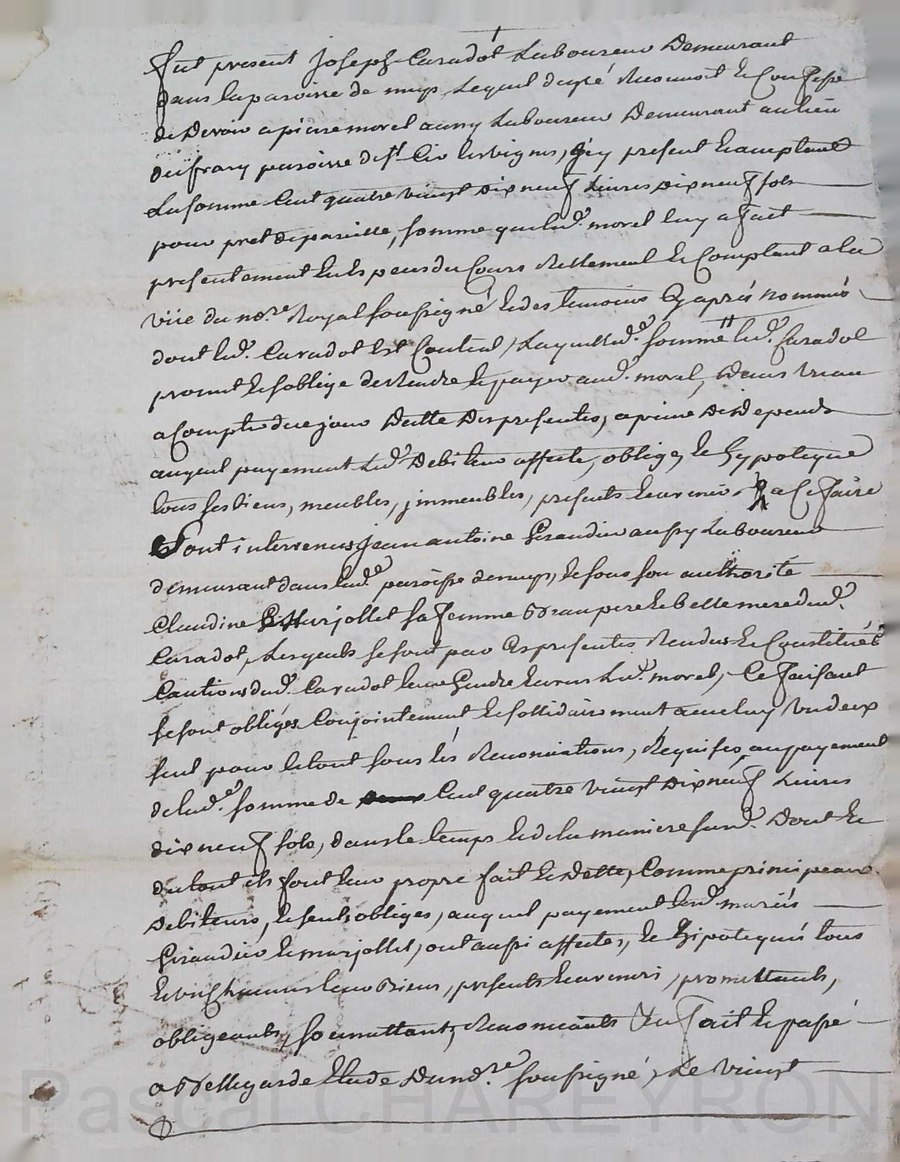 fut present Joseph Caradot Laboureur Demeurant
dans la paroisse de Lequel de gré Reconnoit et Confesse
de Devoir a pierre morel aussy Laboureur Demeurant au lieu
du frany paroisse de St Cir les vignes, icy present et acceptant
La somme Cent quatre vingt Dix neuf Livres Dix neuf sols
pour pret de pareille somme que led. morel luy a fait
presentement en Especes du Cours Rellement et Comptant a la
vüe du no.re Royal soussigné et des temoins Cy aprés nommés
dont led. Caradot Est Content, Laquelle d.e somme led. Caradot
promet et s'oblige de Rendre et payer aud. morel, Dans un an
a Compter de ce jour Datte Des presentes, a peine De Depends
auquel payement Led. Debiteur affecte, oblige, et Hypoteque
tous ses biens, meubles, jmmeubles, presents et avenir. a Ce faire
Sont intervenus jean antoine Giraudier aussy Laboureur
demeurant dans lad.e paroisse de et sous son authorité
Claudine Murjollet sa femme Beau pere et belle mere dud.
Caradot, Lesquels se sont par Ces presentes Rendus et Constitués
Cautions dud. Caradot leur Gendre Envers Led. morel, Ce faisant
se sont obligés Conjointement et sollidairement avec luy un deux
seul pour le tout sous les Renonciations, Requises, au payement
de lad.e somme de Cent quatre vingt Dix neuf Livres
dix neuf sols, dans le temps et de la maniere susd. Dont et
du tout ils font leur propre fait et Dette, Comme principeaux
Debiteurs, et seuls obliges, auquel payement Lesd. mariés
Giraudier et murjollet, ont aussi affectes, et Hipotequés tous
Et Chacuns leurs Biens, presents et avenir, promettants,
obligeants, soumettants, Renonceants &a fait et passé
a Bellegarde Etude Dud no.re soussigné, Le vingt
Pascal CHAREYRON